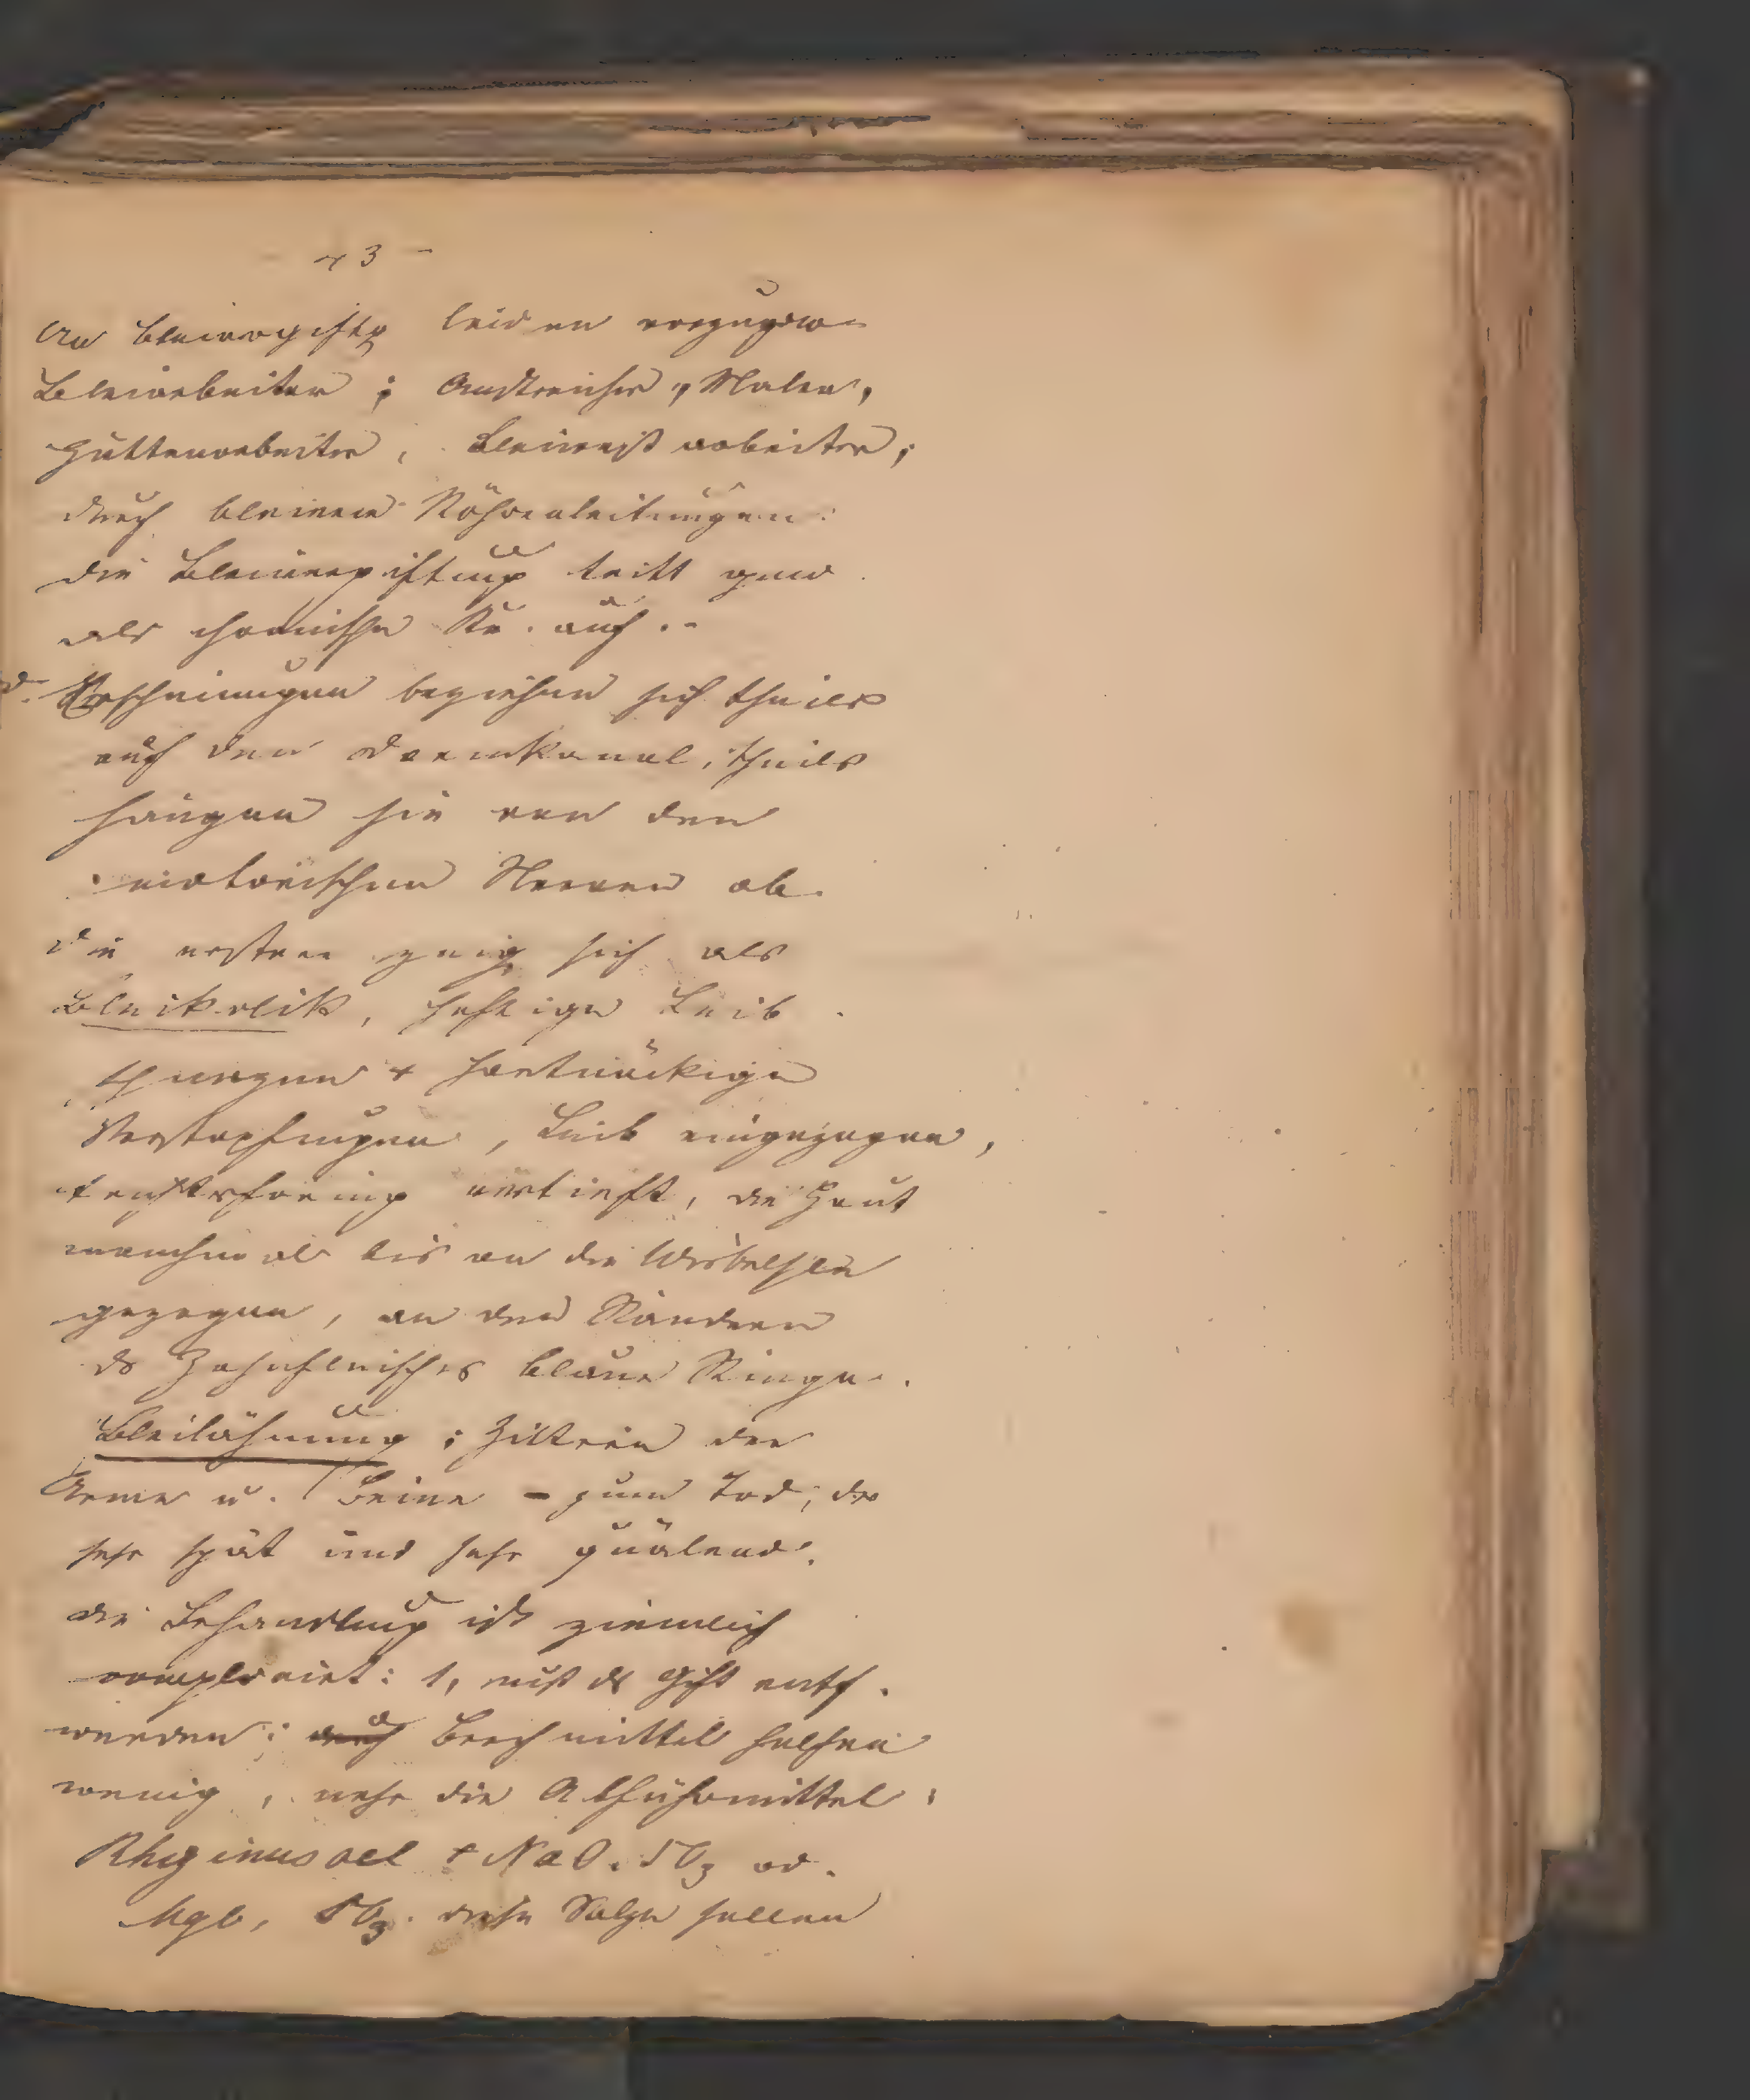 73 -
An Bleivergiftg leiden vorzugsw.
Bleiarbeiter; Anstreicher, Maler,
Hüttenarbeiter, Bleiweißarbeiter;
durch bleierne Röhrenleitungen.
die Bleivergiftung tritt gew.
als chronische Kr. auf.-
d. Erscheinungen beziehen sich theils
auf den Darmkanal, theils
hängen sie von den
motorischen Nerven ab.
Die ersteren zeig. sich als
Bleikolik, heftige Leib
schmerzen + hartnäckige
Verstopfungen, Leib eingezogen,
vertieft, die Haut
manchmal bis an die Wirbelsäule
gezogen, an den Rändern
ds Zahnfleisches blaue Ringe.
Bleilähmung; Zittern der
Arme u. Beine - zum Tod, der
sehr spät und sehr quälend.
die Behandlung ist ziemlich
complicirt: 1, muß ds Gift entf.
werden; durch Brechmittel helfen
wenig, mehr die Abführmittel,
Rhizinusoel + NaO. SO3 od.
MgO, SO3. diese Salze sollen